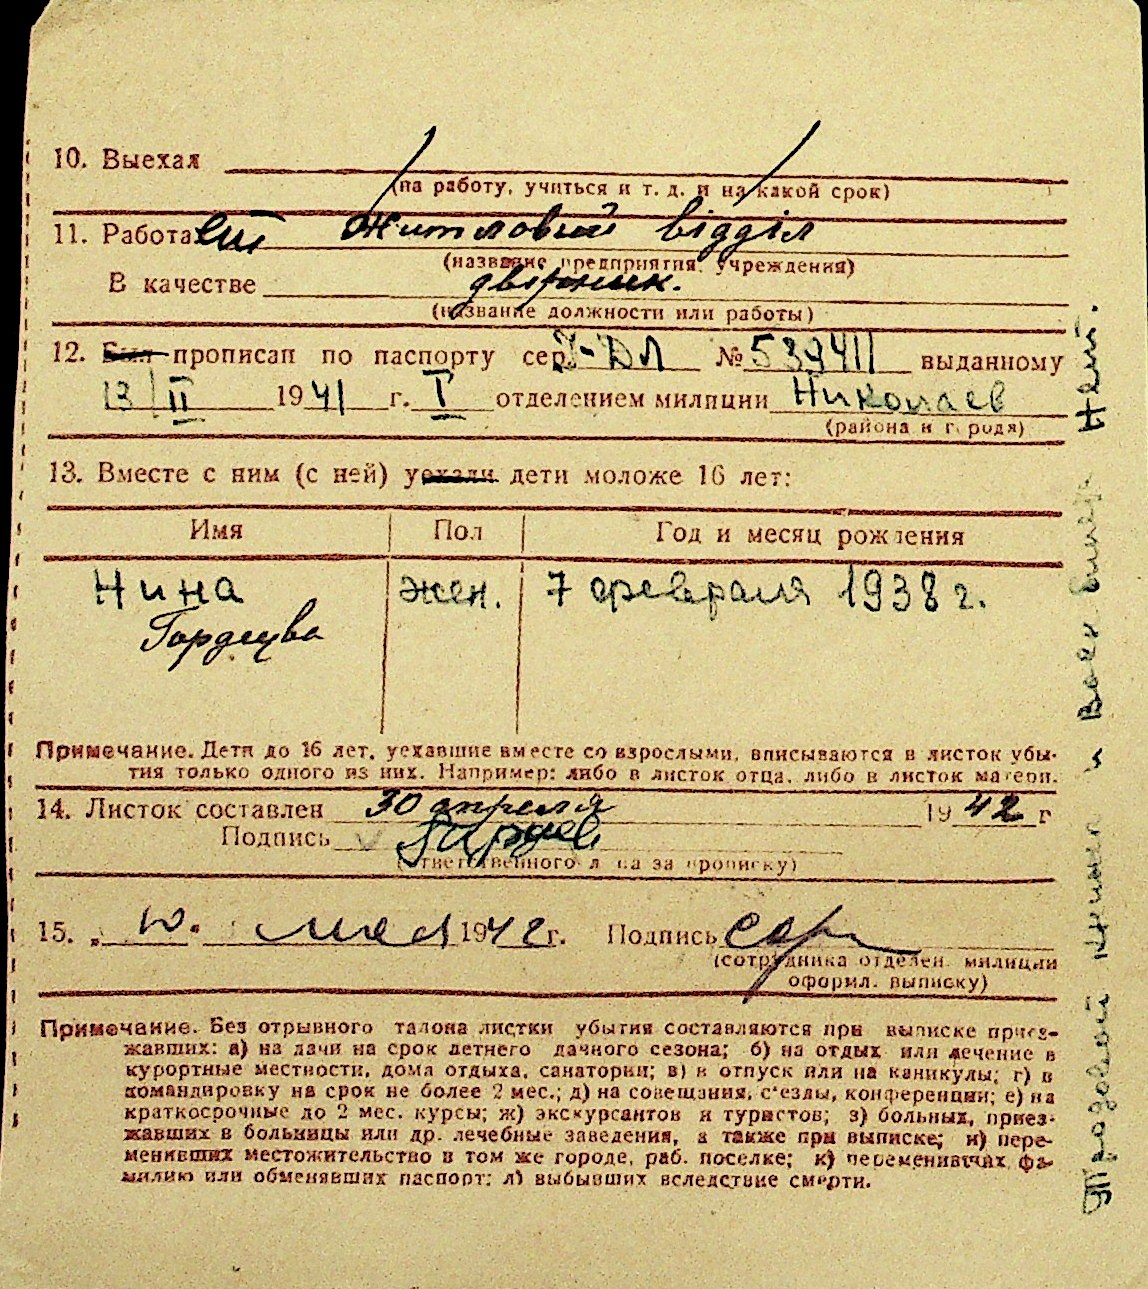 10. Выехал
(на работу, учиться и т. д. и на какой срок)
11. Работает Житловий відділ
(название предприятия, учреждения)
В качестве дворник.
(название должности или работы)
12. Был прописан по паспорту сер. I-ДЛ № 539411 выданному
13/II 1941 г. I отделением милиции Николаев
(района и города)
13. Вместе с ним (с ней) уехали дети моложе 16 лет:
Имя Пол Год и месяц рождения
Нина жен. 7 февраля 1938 г.
Гордеева
Примечание. Дети до 16 лет, уехавшие вместе со взрослыми, вписываются в листок убы-
тия только одного из них. Например: либо в листок отца, либо в листок матери.
14. Листок составлен 30 апреля 1942 г
Подпись
(ответственного лица за прописку)
15. „10“ мая 1942 г. Подпись
(сотрудника отделен. милиции
оформл. выписку)
Примечание. Без отрывного талона листки убытия составляются при выписке приез-
жавших: а) на дачи на срок летнего дачного сезона; б) на отдых или лечение в
курортные местности, дома отдыха, санатории; в) в отпуск или на каникулы; г) в
командировку на срок не более 2 мес.; д) на совещания, с'езды, конференции; е) на
краткосрочные до 2 мес. курсы; ж) экскурсантов и туристов; з) больных, приез-
жавших в больницы или др. лечебные заведения, а также при выписке; и) пере-
менивших местожительство в том же городе, раб. поселке; к) переменивших фа-
милию или обменявших паспорт; л) выбывших вследствие смерти.
Трудовой книжки и Воен билета нет.